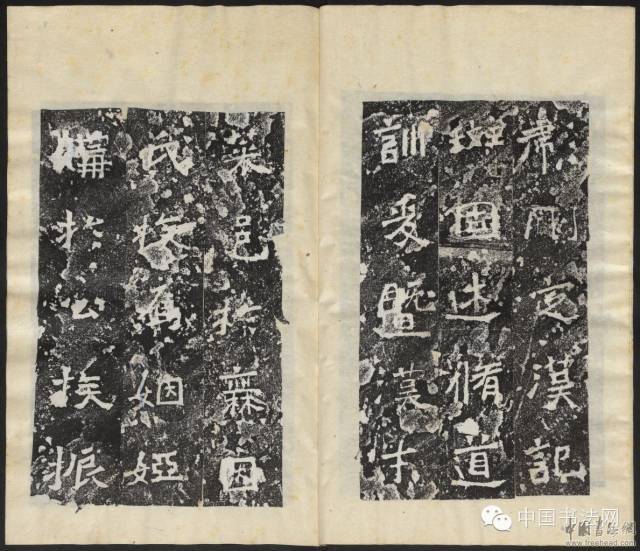 彪刪定漢記
班固述脩道
訓爰暨漢末
采邑於爨因
氏族焉姻婭
媾於公族振
中国书法网
中國書法網
www.freehead.com